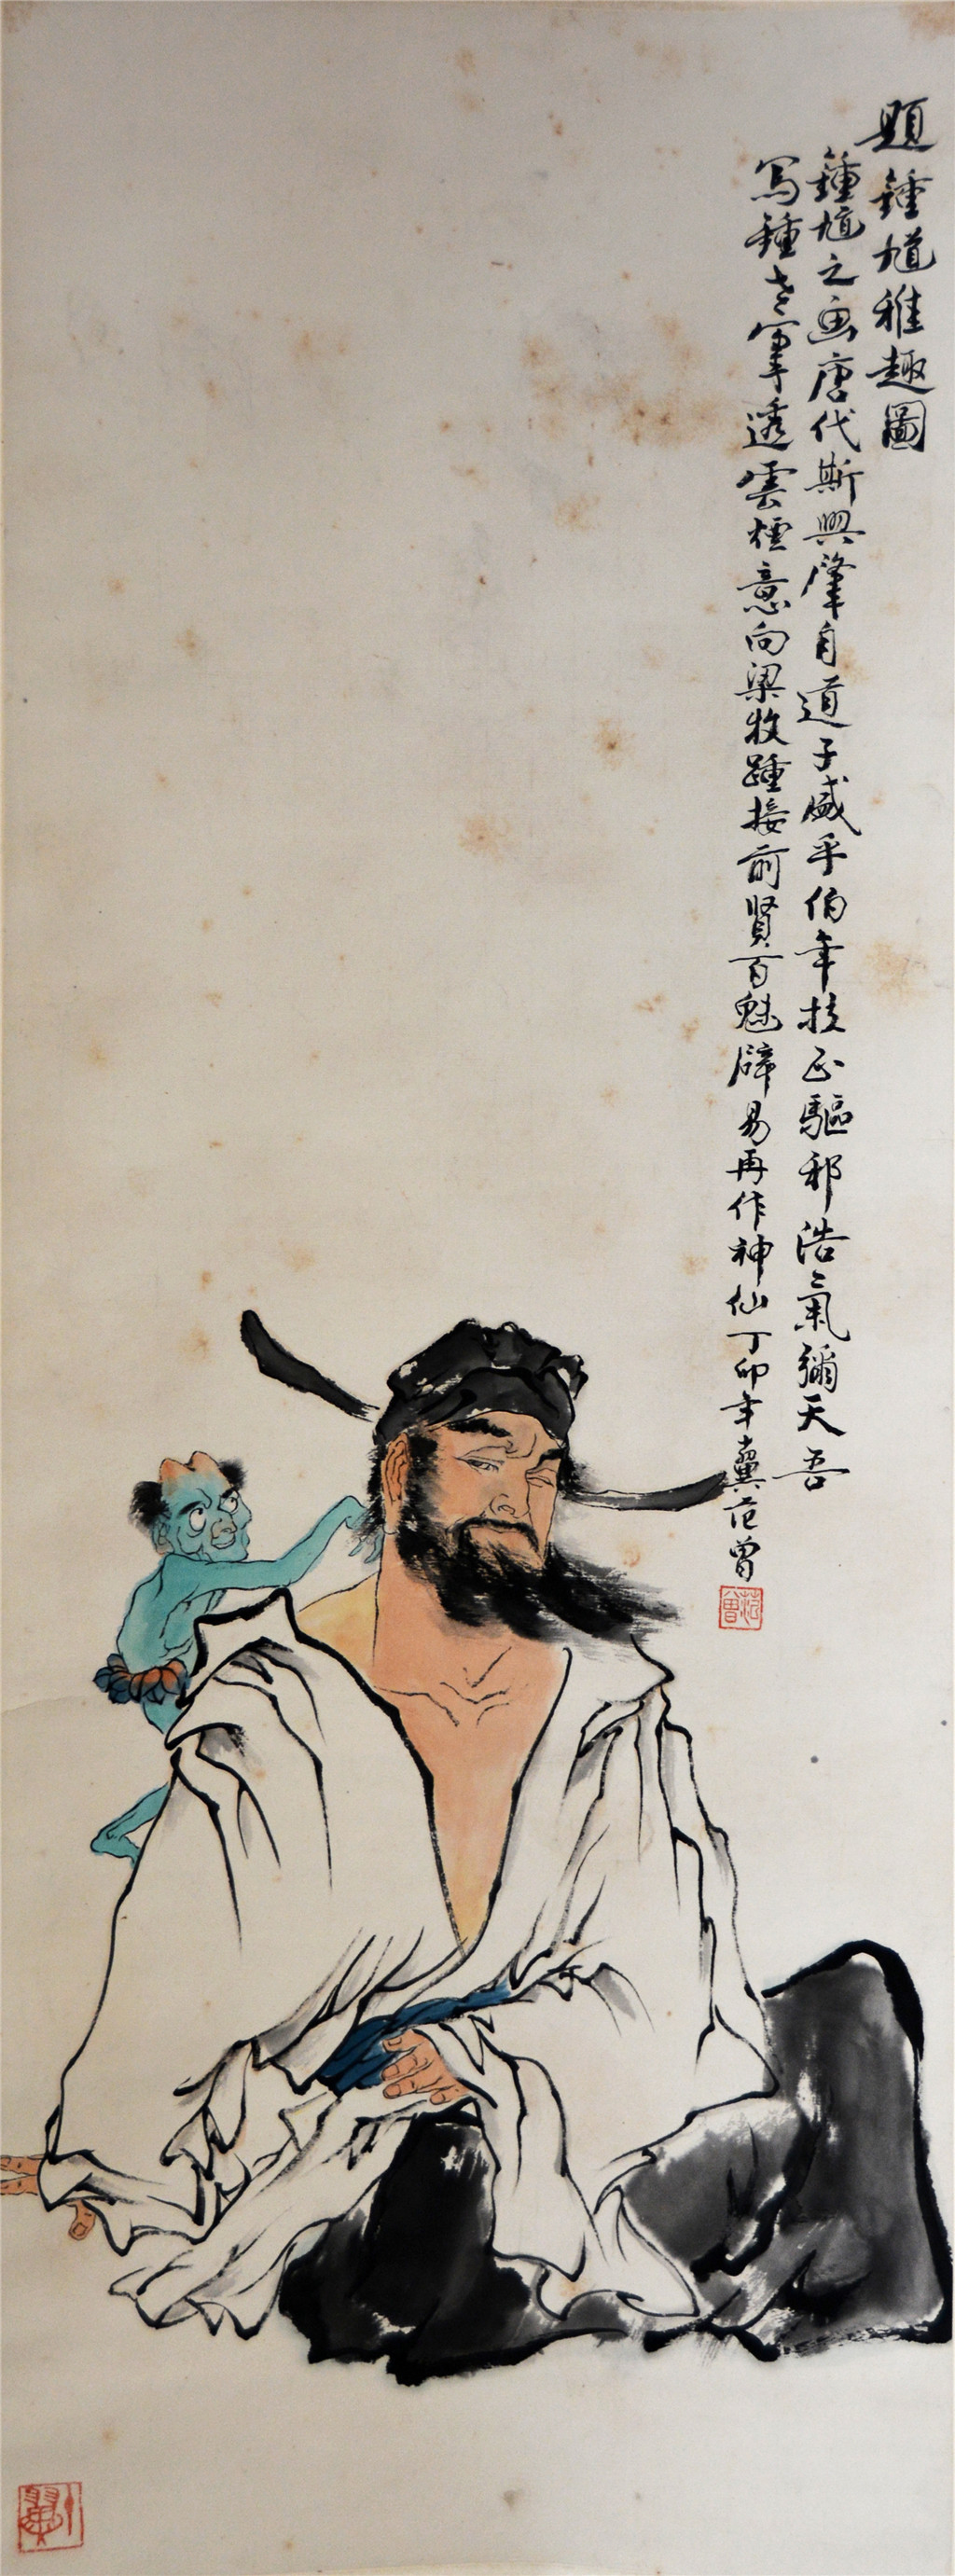 題鍾馗雅趣圖
鍾馗之畫唐代斯興肇自道子盛乎伯年扶正驅邪浩氣彌天吾
寫鍾老筆透雲煙意向梁牧踵接前賢百魅辟易再作神仙丁卯年冀范曾
范曾